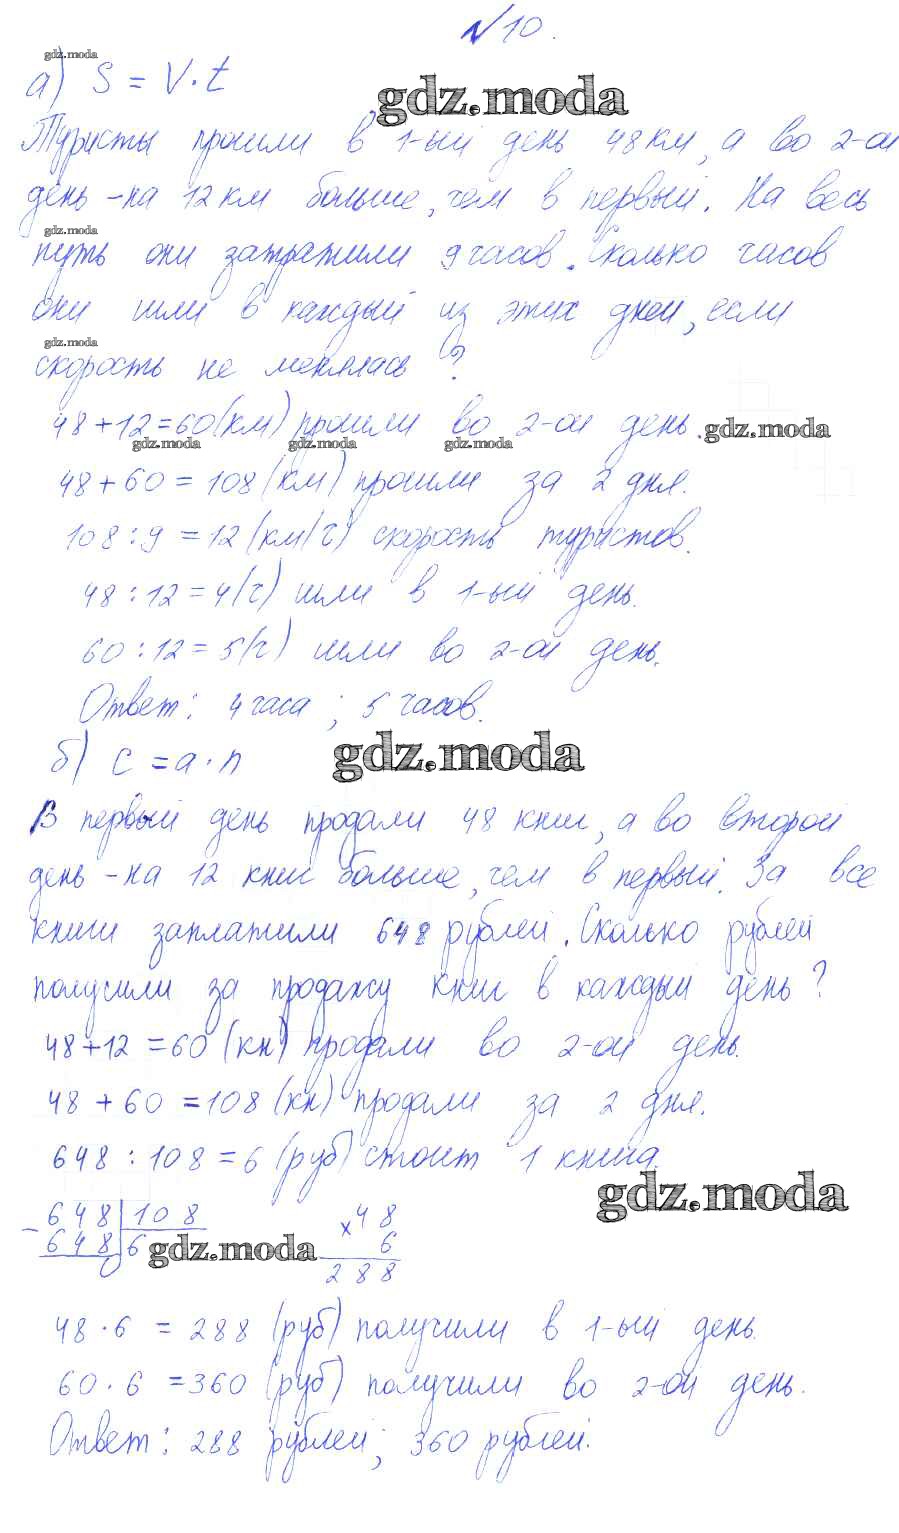 №10.
gdz.moda
а) S = V·t
gdz.moda
Туристы прошли в 1-ый день 48 км, а во 2-ой
день - на 12 км больше, чем в первый. На весь
gdz.moda
путь они затратили 9 часов. Сколько часов
они шли в каждый из этих дней, если
gdz.moda
скорость не менялась?
48 + 12 = 60 (км) прошли во 2-ой день.
gdz.moda
gdz.moda gdz.moda gdz.moda
48 + 60 = 108 (км) прошли за 2 дня.
108 : 9 = 12 (км/ч) скорость туристов.
48 : 12 = 4 (ч) шли в 1-ый день.
60 : 12 = 5 (ч) шли во 2-ой день.
Ответ: 4 часа; 5 часов.
gdz.moda
б) c = a·n
В первый день продали 48 книг, а во второй
день - на 12 книг больше, чем в первый. За все
книги заплатили 648 рублей. Сколько рублей
получили за продажу книг в каждый день?
48 + 12 = 60 (кн) продали во 2-ой день.
48 + 60 = 108 (кн) продали за 2 дня.
648 : 108 = 6 (руб) стоит 1 книга.
gdz.moda
- 648 | 108
648 | 6
0
gdz.moda
× 48
6
288
48 · 6 = 288 (руб) получили в 1-ый день.
60 · 6 = 360 (руб) получили во 2-ой день.
Ответ: 288 рублей; 360 рублей.